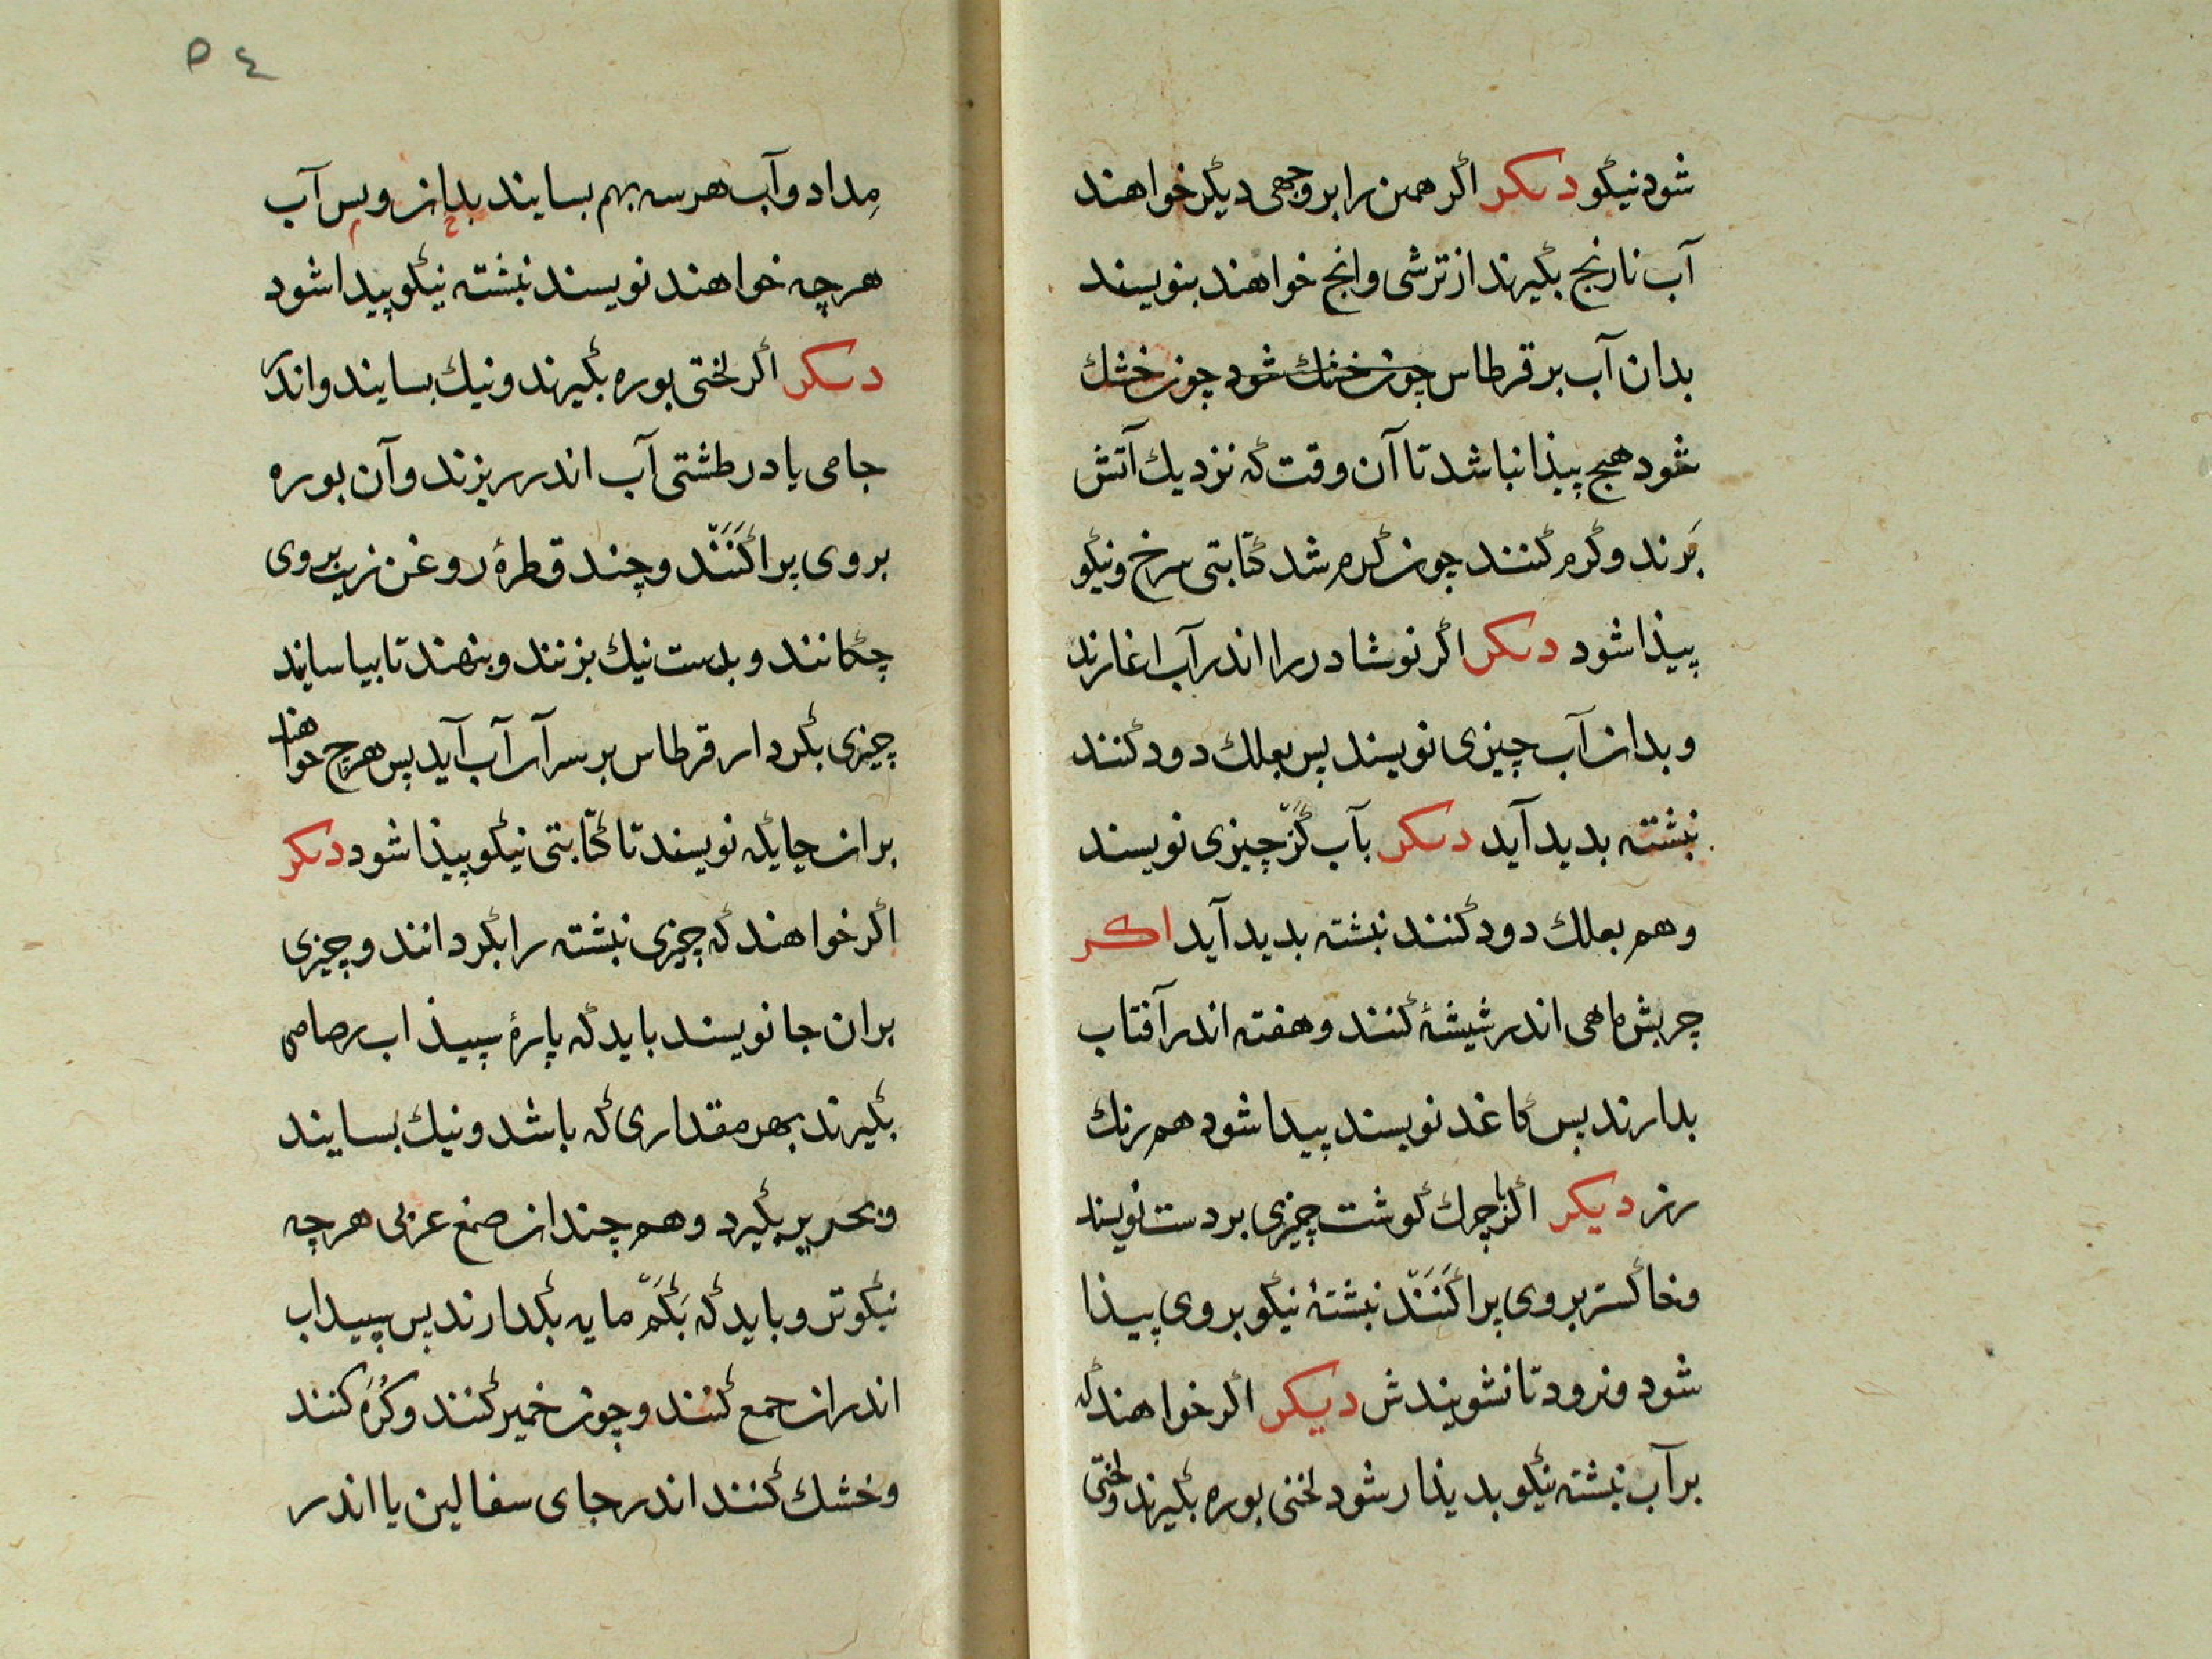 شود نیکو دیکر اکر همین را بر وجهی دیکر خواهند
آب نارنج بکیرند از ترشی وانج خواهند بنویسند
بدان آب بر قرطاس چون خشك شود چون خشك
شود هیچ پیذا نباشد تا آن وقت که نزدیك آتش
برند وکرم کنند چون کرم شد کتابتی سرخ ونیکو
پیذا شود دیکر اکر نوشادر را اندر آب اغارند
وبدان آب چیزی نویسند پس بعلك دود کنند
نبشته بدید آید دیکر بآب کز چیزی نویسند
وهم بعلك دود کنند نبشته بدید آید اکر
چربش ماهی اندر شیشۀ کنند وهفته اندر آفتاب
بدارند بس کاغد نویسند پیدا شود هم رنك
زر دیکر اکر با چرك کوشت چیزی بر دست نویسند
وخاکستر بر وی پراکَنَنّد نبشتۀ نیکو بر وی پیذا
شود ونرود تا نشویندش دیکر اکر خواهند که
بر آب نبشته نیکو بدیذار شود لختی بوره بکیرند ولختی
٥٤
مِداد وآب هر سه بهم بسایند بدان وبس آب
هرچه خواهند نویسند نبشته نیکو پیدا شود
دیکر اکر لختی بوره بکیرند ونیك بسایند واندر
جامی یا در طشتی آب اندر ریزند وآن بوره
بروی پراکَنَنّد وچند قطرۀ روغن زیت بروی
چکانند وبدست نیك بزنند وبنهند تا بیاساید
چیزی بکردار قرطاس بر سر آن آب آید پس هرچ خواهند
بران جایکه نویسند تا کتابتی نیکو پیذا شود دیکر
اکر خواهند که چیزی نبشته را بکردانند وچیزی
بران جا نویسند باید که پارۀ سپیذاب رصاصی
بکیرند بهر مقداری که باشد ونیك بسایند
وبحریر بکیرد وهم چندان صمغ عربی هرچه
نیکوتر وباید که بَکَمّ مایه بکدارند پس سپیداب
اندران جمع کنند وچون خمیر کنند وکُرَه کنند
وخشك کنند اندر جای سفالین یا اندر